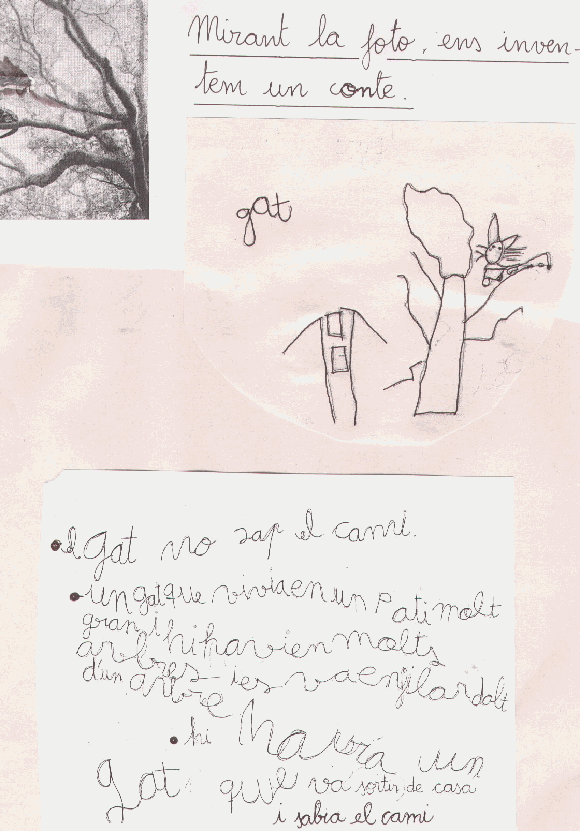 Mirant la foto, ens inven-
tem un conte.
gat
el gat no sap el camí.
un gat que vivia en un pati molt
gran i hi havien molts
arbres i es va enfilar dalt
d'un arbre
hi havia un
gat que va sortir de casa
i sabia el camí